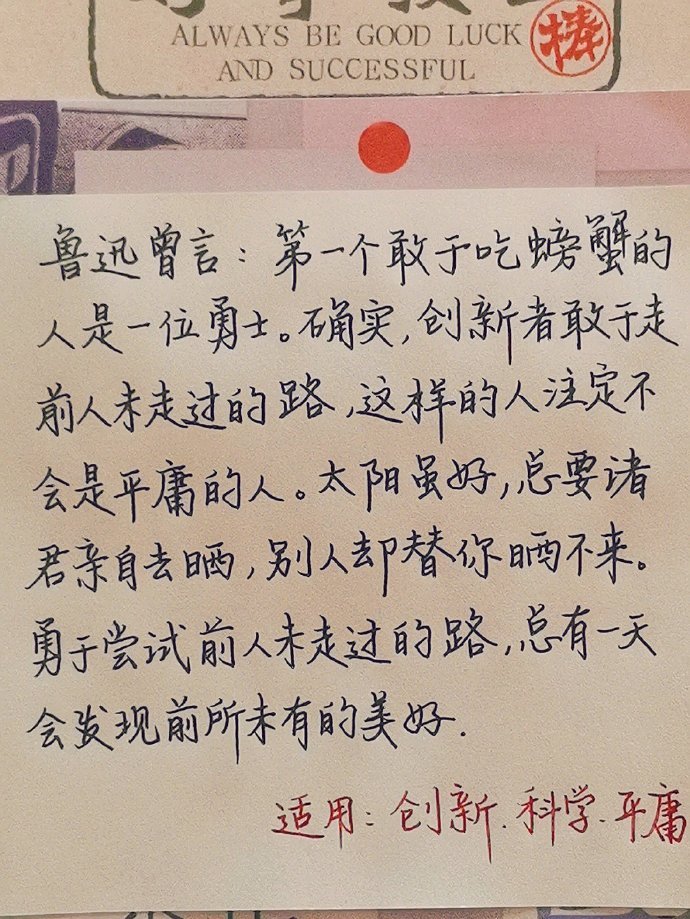 ALWAYS BE GOOD LUCK
AND SUCCESSFUL
棒
鲁迅曾言：第一个敢于吃螃蟹的
人是一位勇士。确实，创新者敢于走
前人未走过的路，这样的人注定不
会是平庸的人。太阳虽好，总要诸
君亲自去晒，别人却替你晒不来。
勇于尝试前人未走过的路，总有一天
会发现前所未有的美好.
适用：创新.科学.平庸